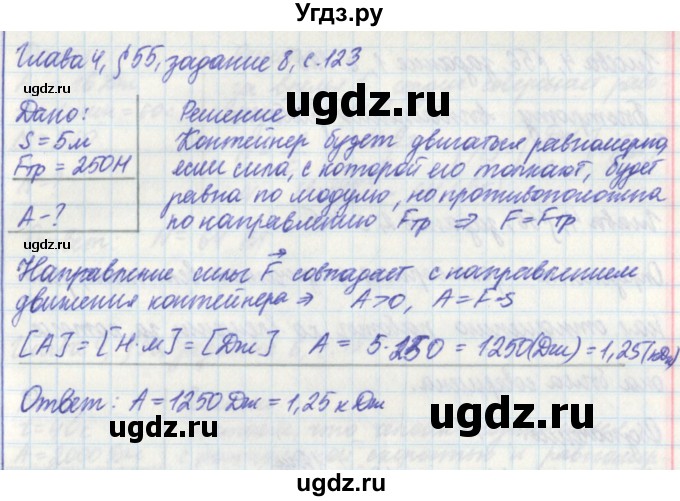 Угдз.ру
Глава 4, § 55, задание 8, с. 123
ugdz.ru
Дано:
Решение
S = 5м
Контейнер будет двигаться равномерно,
Fтр = 250Н
если сила, с которой его толкают, будет
равна по модулю, но противоположна
A - ?
по направлению Fтр ⇒ F = Fтр
ugdz.ru
ugdz.ru
Направление силы F⃗ совпадает с направлением
движения контейнера ⇒ A>0, A = F·S
ugdz.ru
[A] = [Н·м] = [Дж] A = 5·250 = 1250(Дж) = 1,25(кДж)
ugdz.ru
Ответ: A = 1250 Дж = 1,25 кДж
ugdz.ru
ugdz.ru